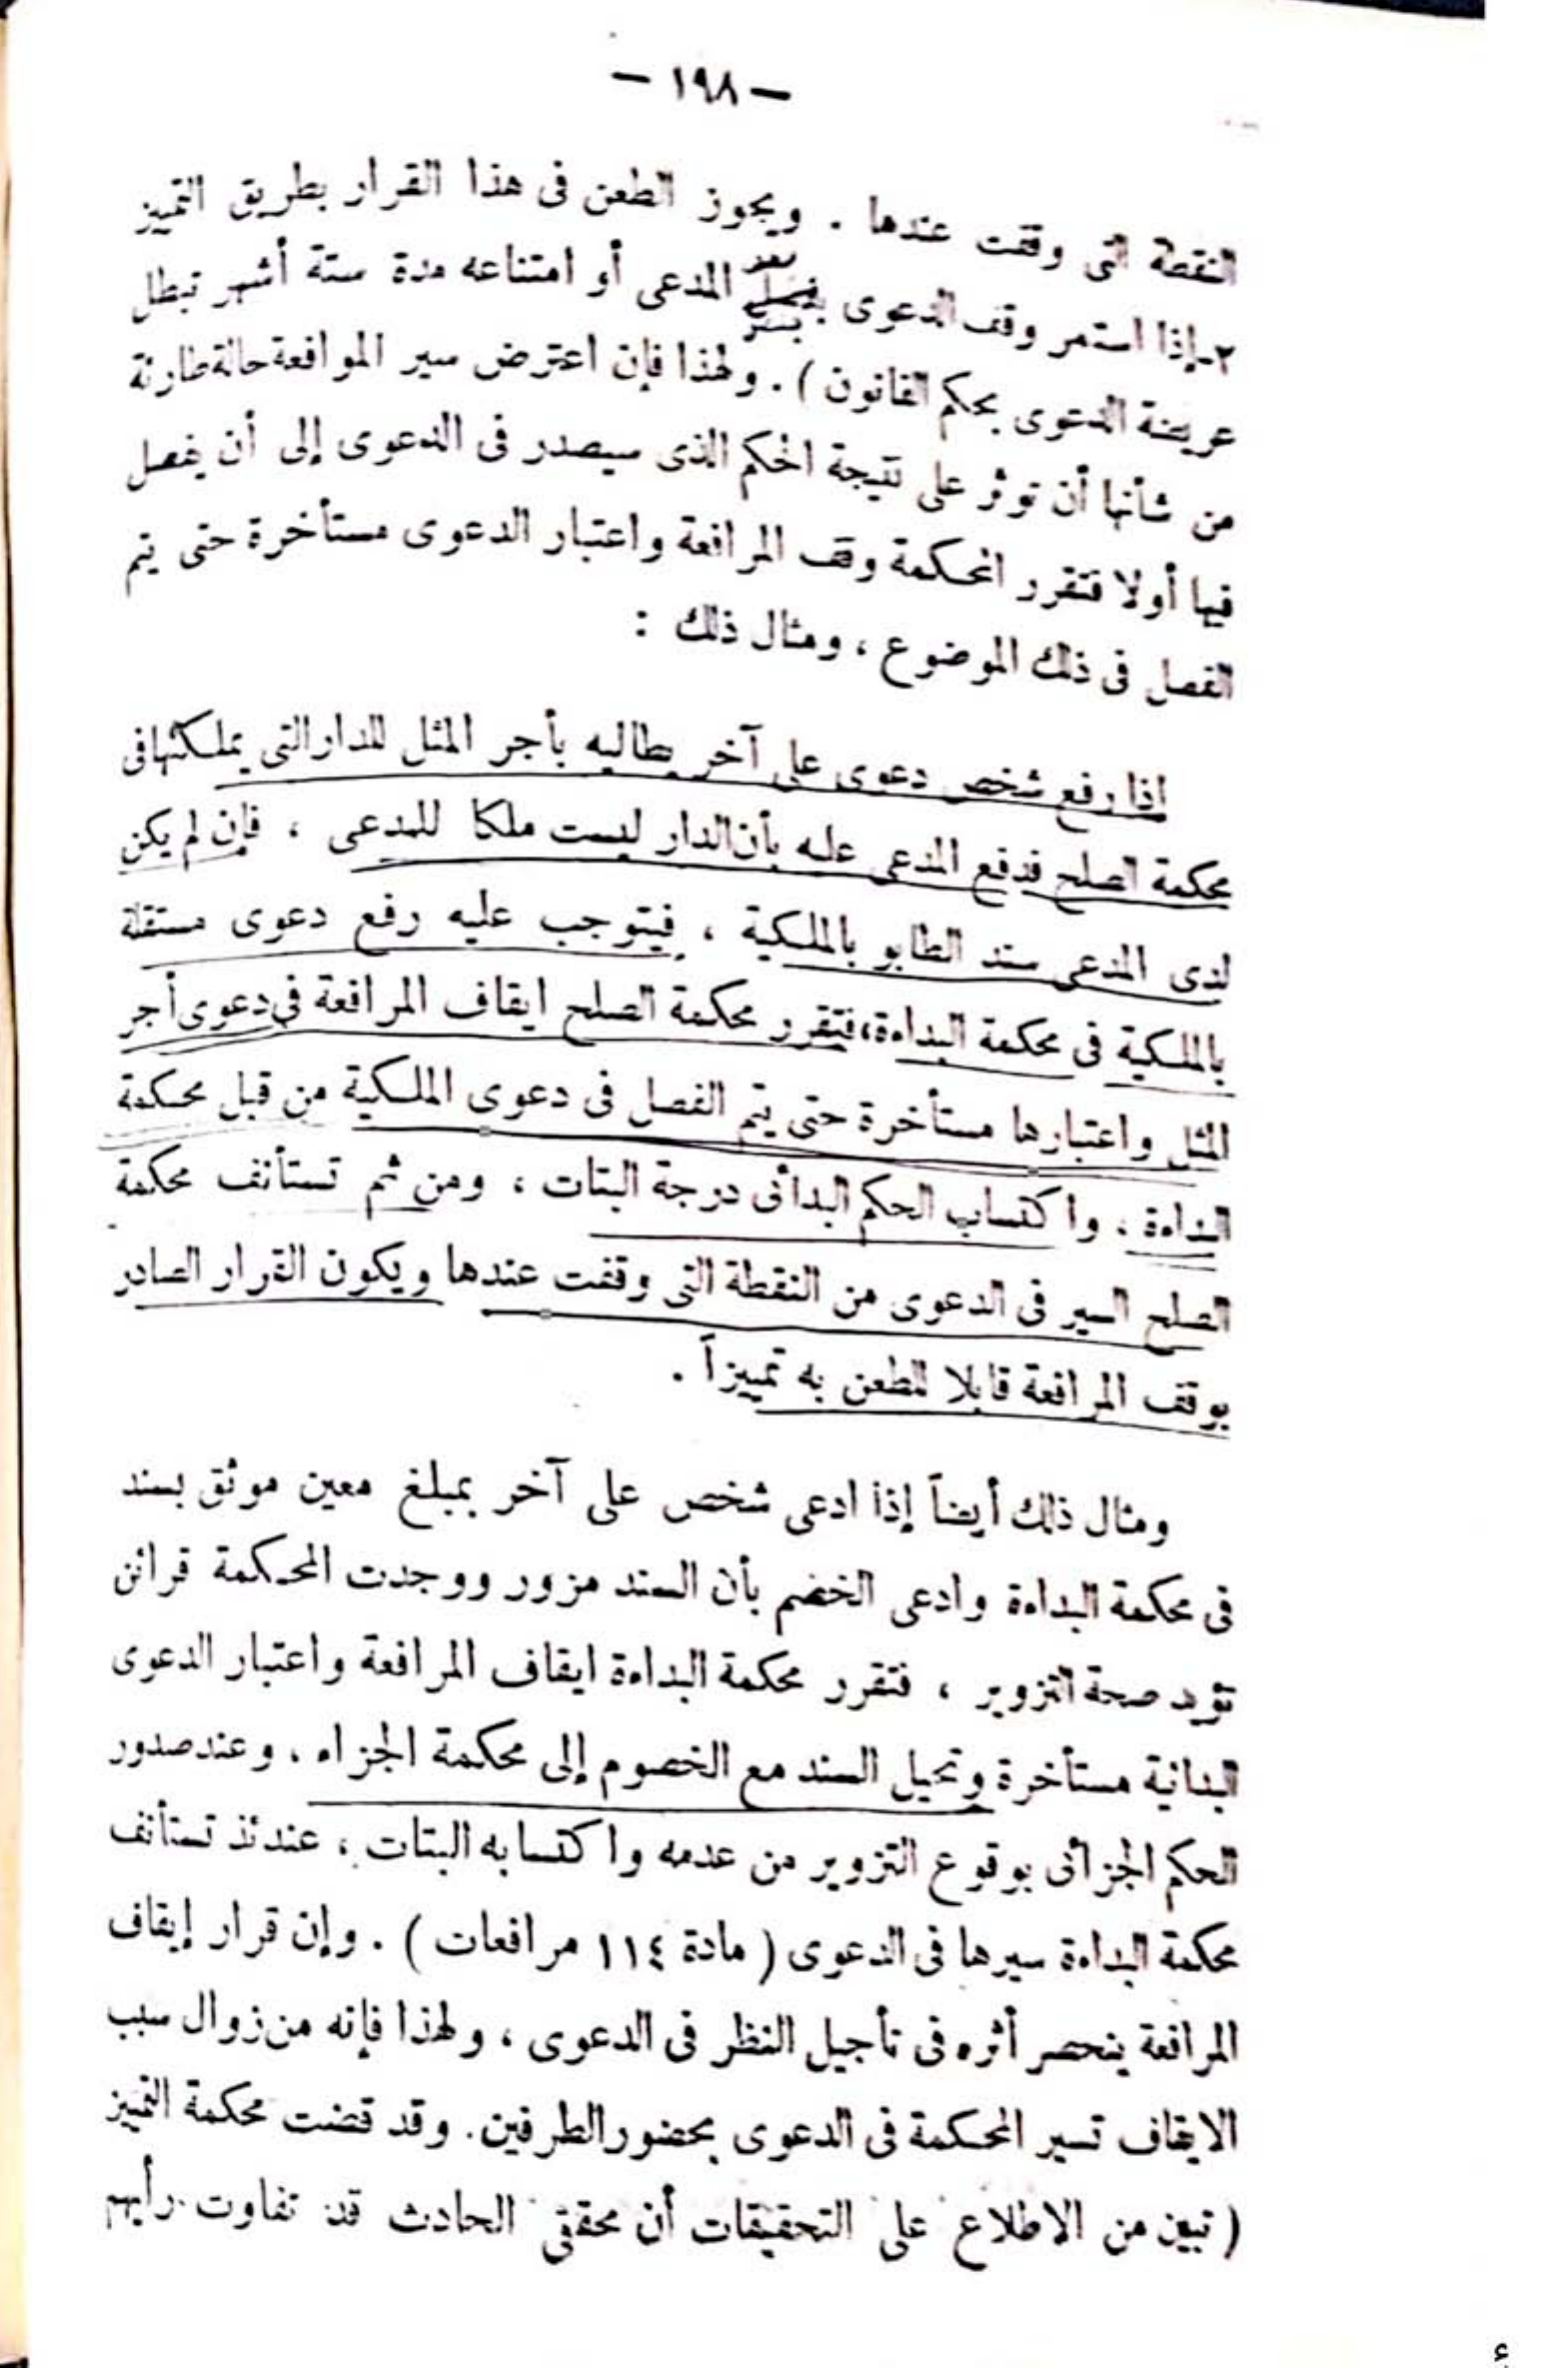 — ١٩٨ —
النقطة التى وقفت عندها . ويجوز الطعن فى هذا القرار بطريق التمييز
٢ـ إذا استمر وقف الدعوى المدعى أو امتناعه مدة ستة أشهر تبطل
عريضة الدعوى بحكم القانون ) . ولهذا فإن اعترض سير الموافعة حالة طارئة
من شأنها أن توثر على نتيجة الحكم الذى سيصدر فى الدعوى إلى أن يفصل
فيها أولا فتقرر المحكمة وقف المرافعة واعتبار الدعوى مستأخرة حتى يتم
الفصل فى ذلك الموضوع ، ومثال ذلك :
إذا رفع شخص دعوى على آخر يطالبه بأجر المثل للدار التى يملكها فى
محكمة الصلح فدفع المدعى عليه بأن الدار ليست ملكا للمدعى ، فإن لم يكن
لدى المدعى سند الطابو بالملكية ، فيتوجب عليه رفع دعوى مستقلة
بالملكية فى محكمة البداءة، فتقرر محكمة الصلح ايقاف المرافعة فى دعوى أجر
المثل واعتبارها مستأخرة حتى يتم الفصل فى دعوى الملكية من قبل محكمة
البداءة ، واكتساب الحكم البدائى درجة البتات ، ومن ثم تستأنف محكمة
الصلح السير فى الدعوى من النقطة التى وقفت عندها ويكون القرار الصادر
بوقف المرافعة قابلا للطعن به تمييزاً .
ومثال ذلك أيضاً إذا ادعى شخص على آخر بمبلغ معين موثق بسند
فى محكمة البداءة وادعى الخصم بأن السند مزور ووجدت المحكمة قرائن
تؤيد صحة التزوير ، فتقرر محكمة البداءة ايقاف المرافعة واعتبار الدعوى
البدائية مستأخرة وتحيل السند مع الخصوم إلى محكمة الجزاء ، وعند صدور
الحكم الجزائى بوقوع التزوير من عدمه واكتسابه البتات ، عندئذ تستأنف
محكمة البداءة سيرها فى الدعوى ( مادة ١١٤ مرافعات ) . وإن قرار إيقاف
المرافعة ينحصر أثره فى تأجيل النظر فى الدعوى ، ولهذا فإنه من زوال سبب
الايقاف تسير المحكمة فى الدعوى بحضور الطرفين. وقد قضت محكمة التمييز
( تبين من الاطلاع على التحقيقات أن محققى الحادث قد تفاوت رأيهم